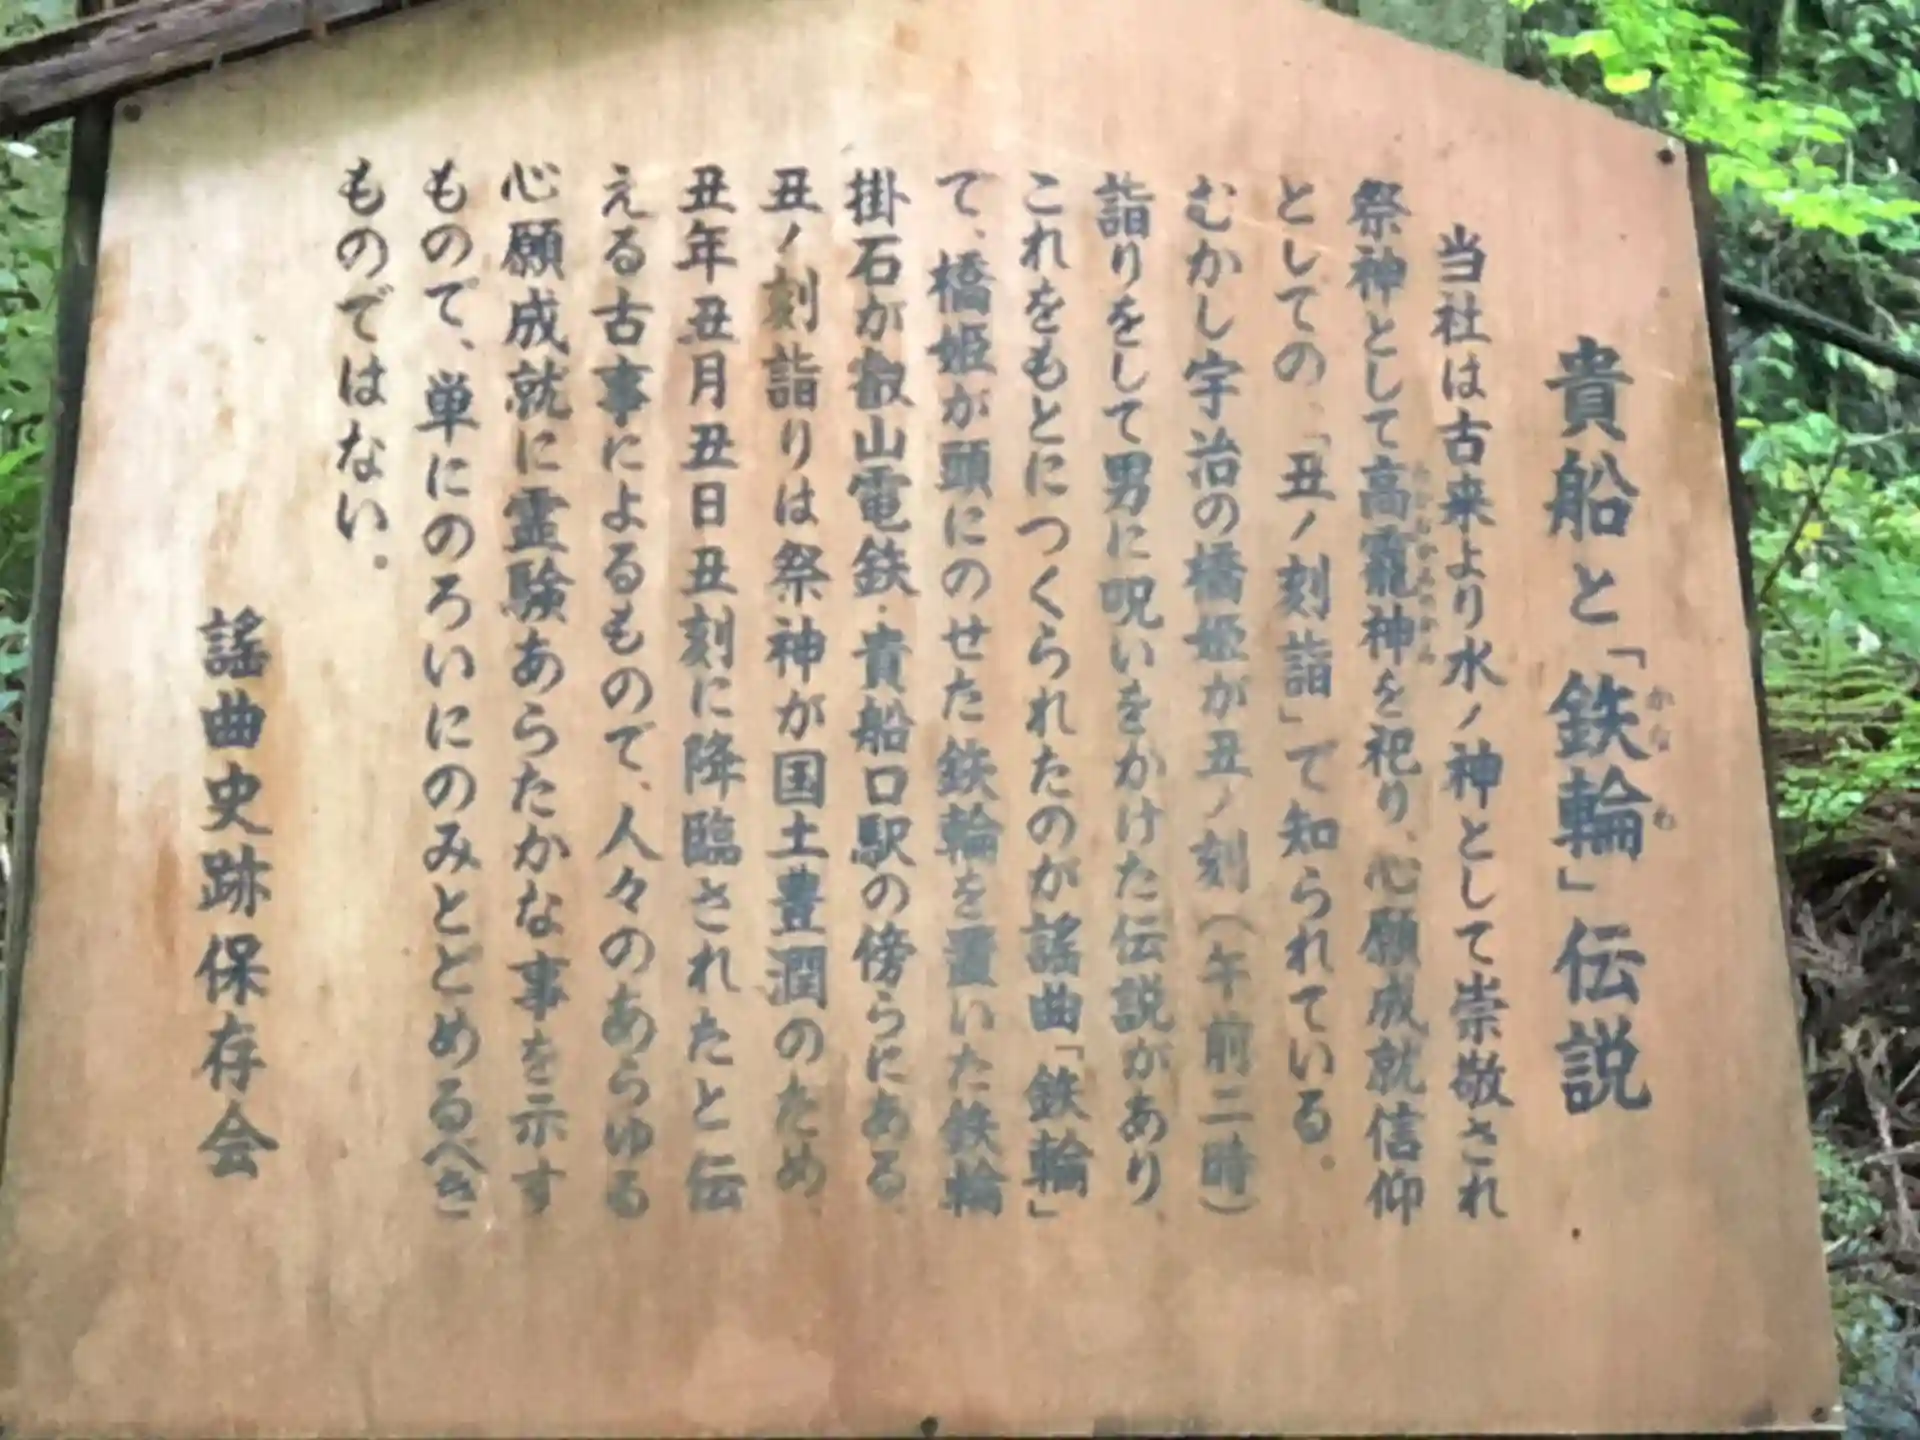 貴船と「鉄輪」伝説
かなわ
当社は古来より水ノ神として崇敬され
祭神として高龗神を祀り、心願成就信仰
たかおかみのかみ
としての、「丑ノ刻詣」で知られている。
むかし宇治の橋姫が丑ノ刻(午前二時)
詣りをして男に呪いをかけた伝説があり
これをもとにつくられたのが謡曲「鉄輪」
で、橋姫が頭にのせた鉄輪を置いた鉄輪
掛石が叡山電鉄・貴船口駅の傍らにある
丑ノ刻詣りは祭神が国土豊潤のため
丑年丑月丑日丑刻に降臨されたと伝
える古事によるもので、人々のあらゆる
心願成就に霊験あらたかな事を示す
もので、単にのろいにのみとどめるべき
ものではない。
謡曲史跡保存会